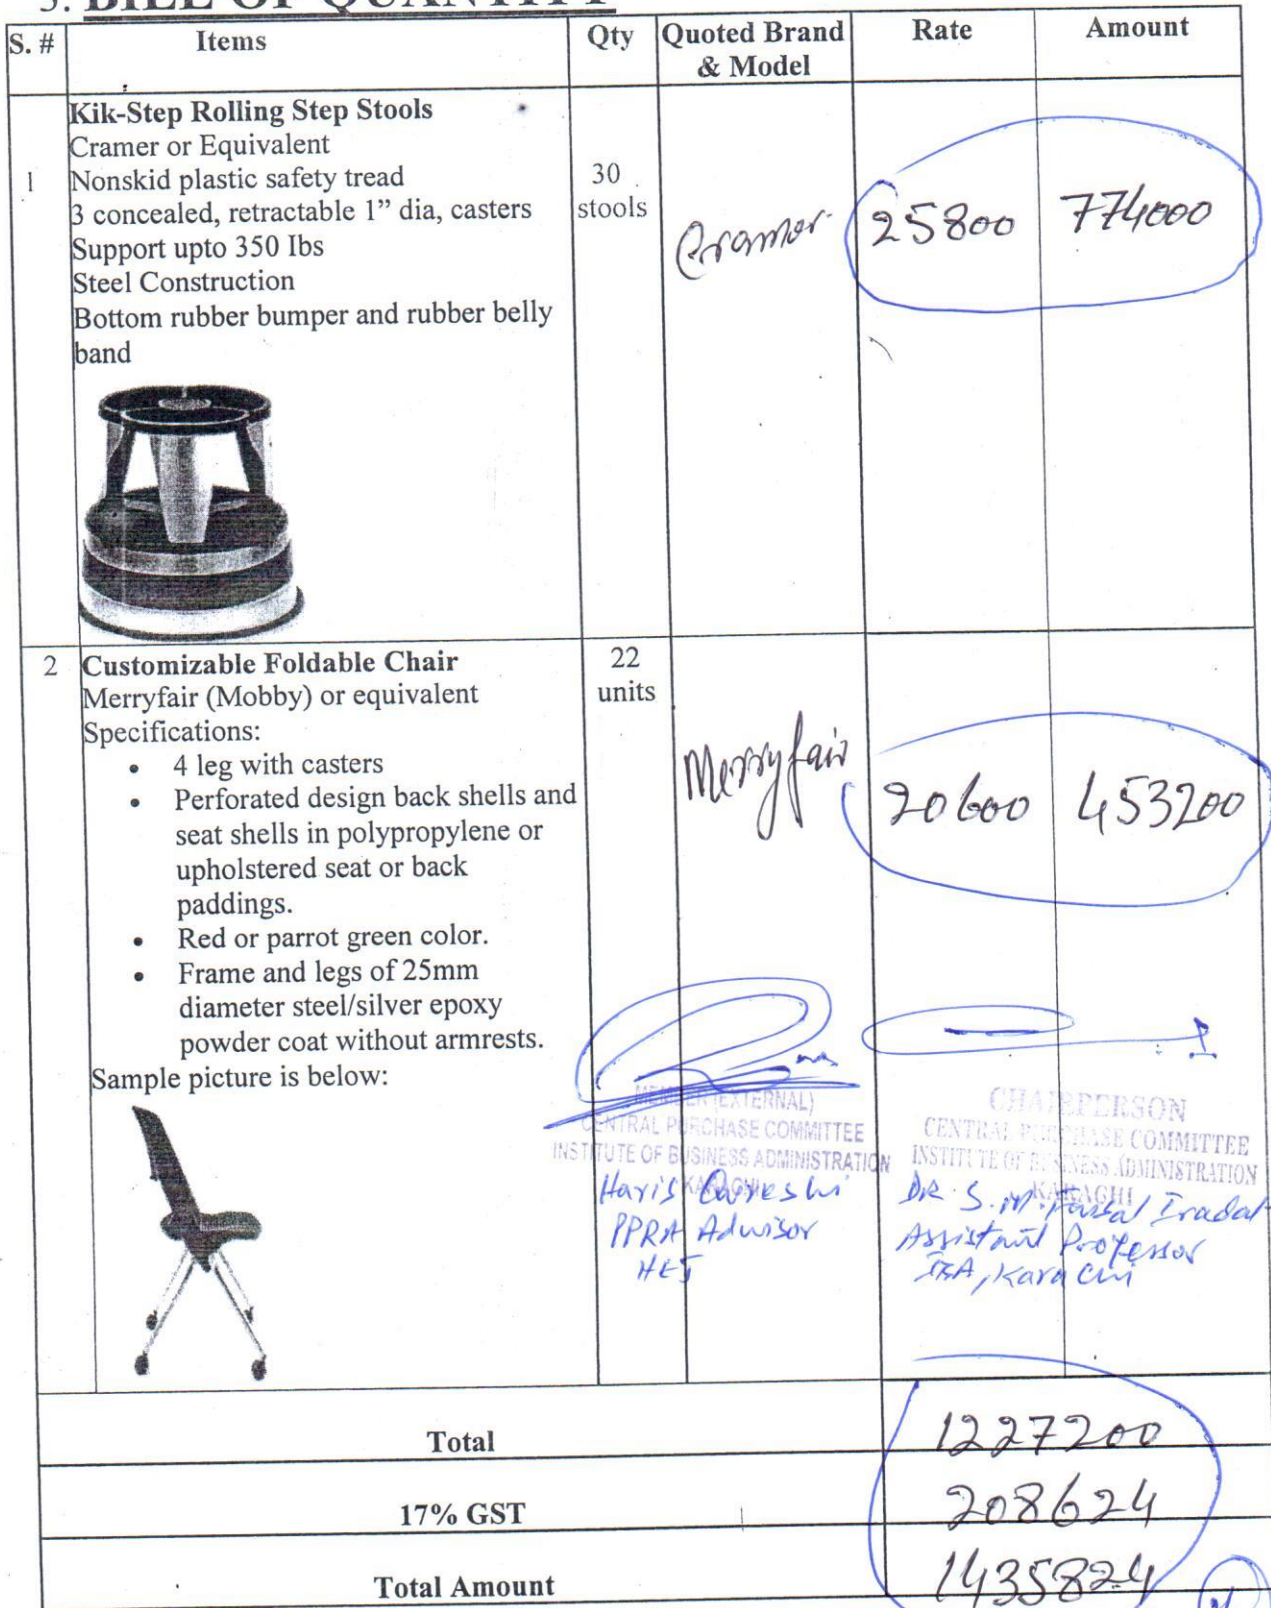 3. BILL OF QUANTITY
S. # Items Qty Quoted Brand & Model Rate Amount
1 Kik-Step Rolling Step Stools
Cramer or Equivalent
Nonskid plastic safety tread
3 concealed, retractable 1” dia, casters
Support upto 350 Ibs
Steel Construction
Bottom rubber bumper and rubber belly
band
30
stools
Cramer 25800 774000
2 Customizable Foldable Chair
Merryfair (Mobby) or equivalent
Specifications:
• 4 leg with casters
• Perforated design back shells and
seat shells in polypropylene or
upholstered seat or back
paddings.
• Red or parrot green color.
• Frame and legs of 25mm
diameter steel/silver epoxy
powder coat without armrests.
Sample picture is below:
22
units
Merryfair 20600 453200
MEMBER (EXTERNAL)
CENTRAL PURCHASE COMMITTEE
INSTITUTE OF BUSINESS ADMINISTRATION
KARACHI
Haris Qureshi
PPRA Advisor
HEJ
CHAIRPERSON
CENTRAL PURCHASE COMMITTEE
INSTITUTE OF BUSINESS ADMINISTRATION
KARACHI
DR. S. M. Faisal Iradat
Assistant Professor
IBA, Karachi
Total 1227200
17% GST 208624
Total Amount 1435824